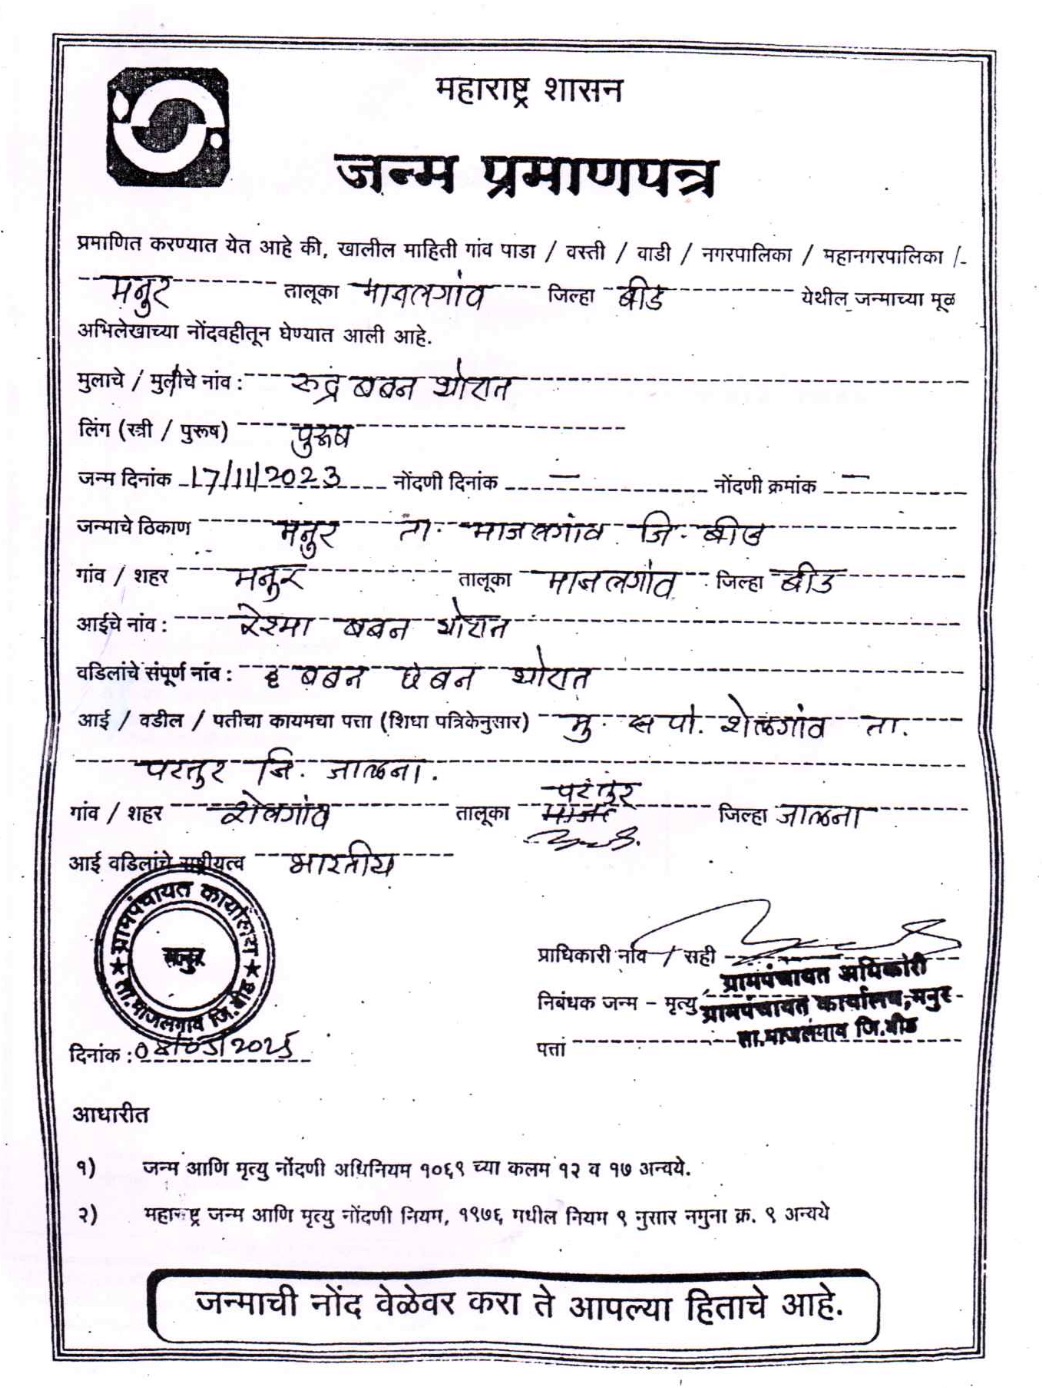 महाराष्ट्र शासन
जन्म प्रमाणपत्र
प्रमाणित करण्यात येत आहे की, खालील माहिती गांव पाडा / वस्ती / वाडी / नगरपालिका / महानगरपालिका /-
मनुर तालूका माजलगांव जिल्हा बीड येथील जन्माच्या मूळ
अभिलेखाच्या नोंदवहीतून घेण्यात आली आहे.
मुलाचे / मुलीचे नांव : रुद्र बबन थोरात
लिंग (स्त्री / पुरूष) पुरूष
जन्म दिनांक 17/11/2023 नोंदणी दिनांक - नोंदणी क्रमांक -
जन्माचे ठिकाण मनुर ता. माजलगांव जि. बीड
गांव / शहर मनुर तालूका माजलगांव जिल्हा बीड
आईचे नांव : रेश्मा बबन थोरात
वडिलांचे संपूर्ण नांव : बबन छबन थोरात
आई / वडील / पतीचा कायमचा पत्ता (शिधा पत्रिकेनुसार) मु. पो. शेलगांव ता.
परतुर जि. जालना.
गांव / शहर शेलगांव तालूका परतुर जिल्हा जालना
आई वडिलांचे राष्ट्रीयत्व भारतीय
ग्रामपंचायत कार्यालय
मनुर
ता.माजलगाव जि.बीड
प्राधिकारी नांव / सही
ग्रामपंचायत अधिकारी
निबंधक जन्म - मृत्यु ग्रामपंचायत कार्यालय, मनुर
ता.माजलगाव जि.बीड
दिनांक : पत्ता
आधारीत
१) जन्म आणि मृत्यु नोंदणी अधिनियम १०६९ च्या कलम १२ व १७ अन्वये.
२) महाराष्ट्र जन्म आणि मृत्यु नोंदणी नियम, १९७६ मधील नियम ९ नुसार नमुना क्र. ९ अन्वये
जन्माची नोंद वेळेवर करा ते आपल्या हिताचे आहे.